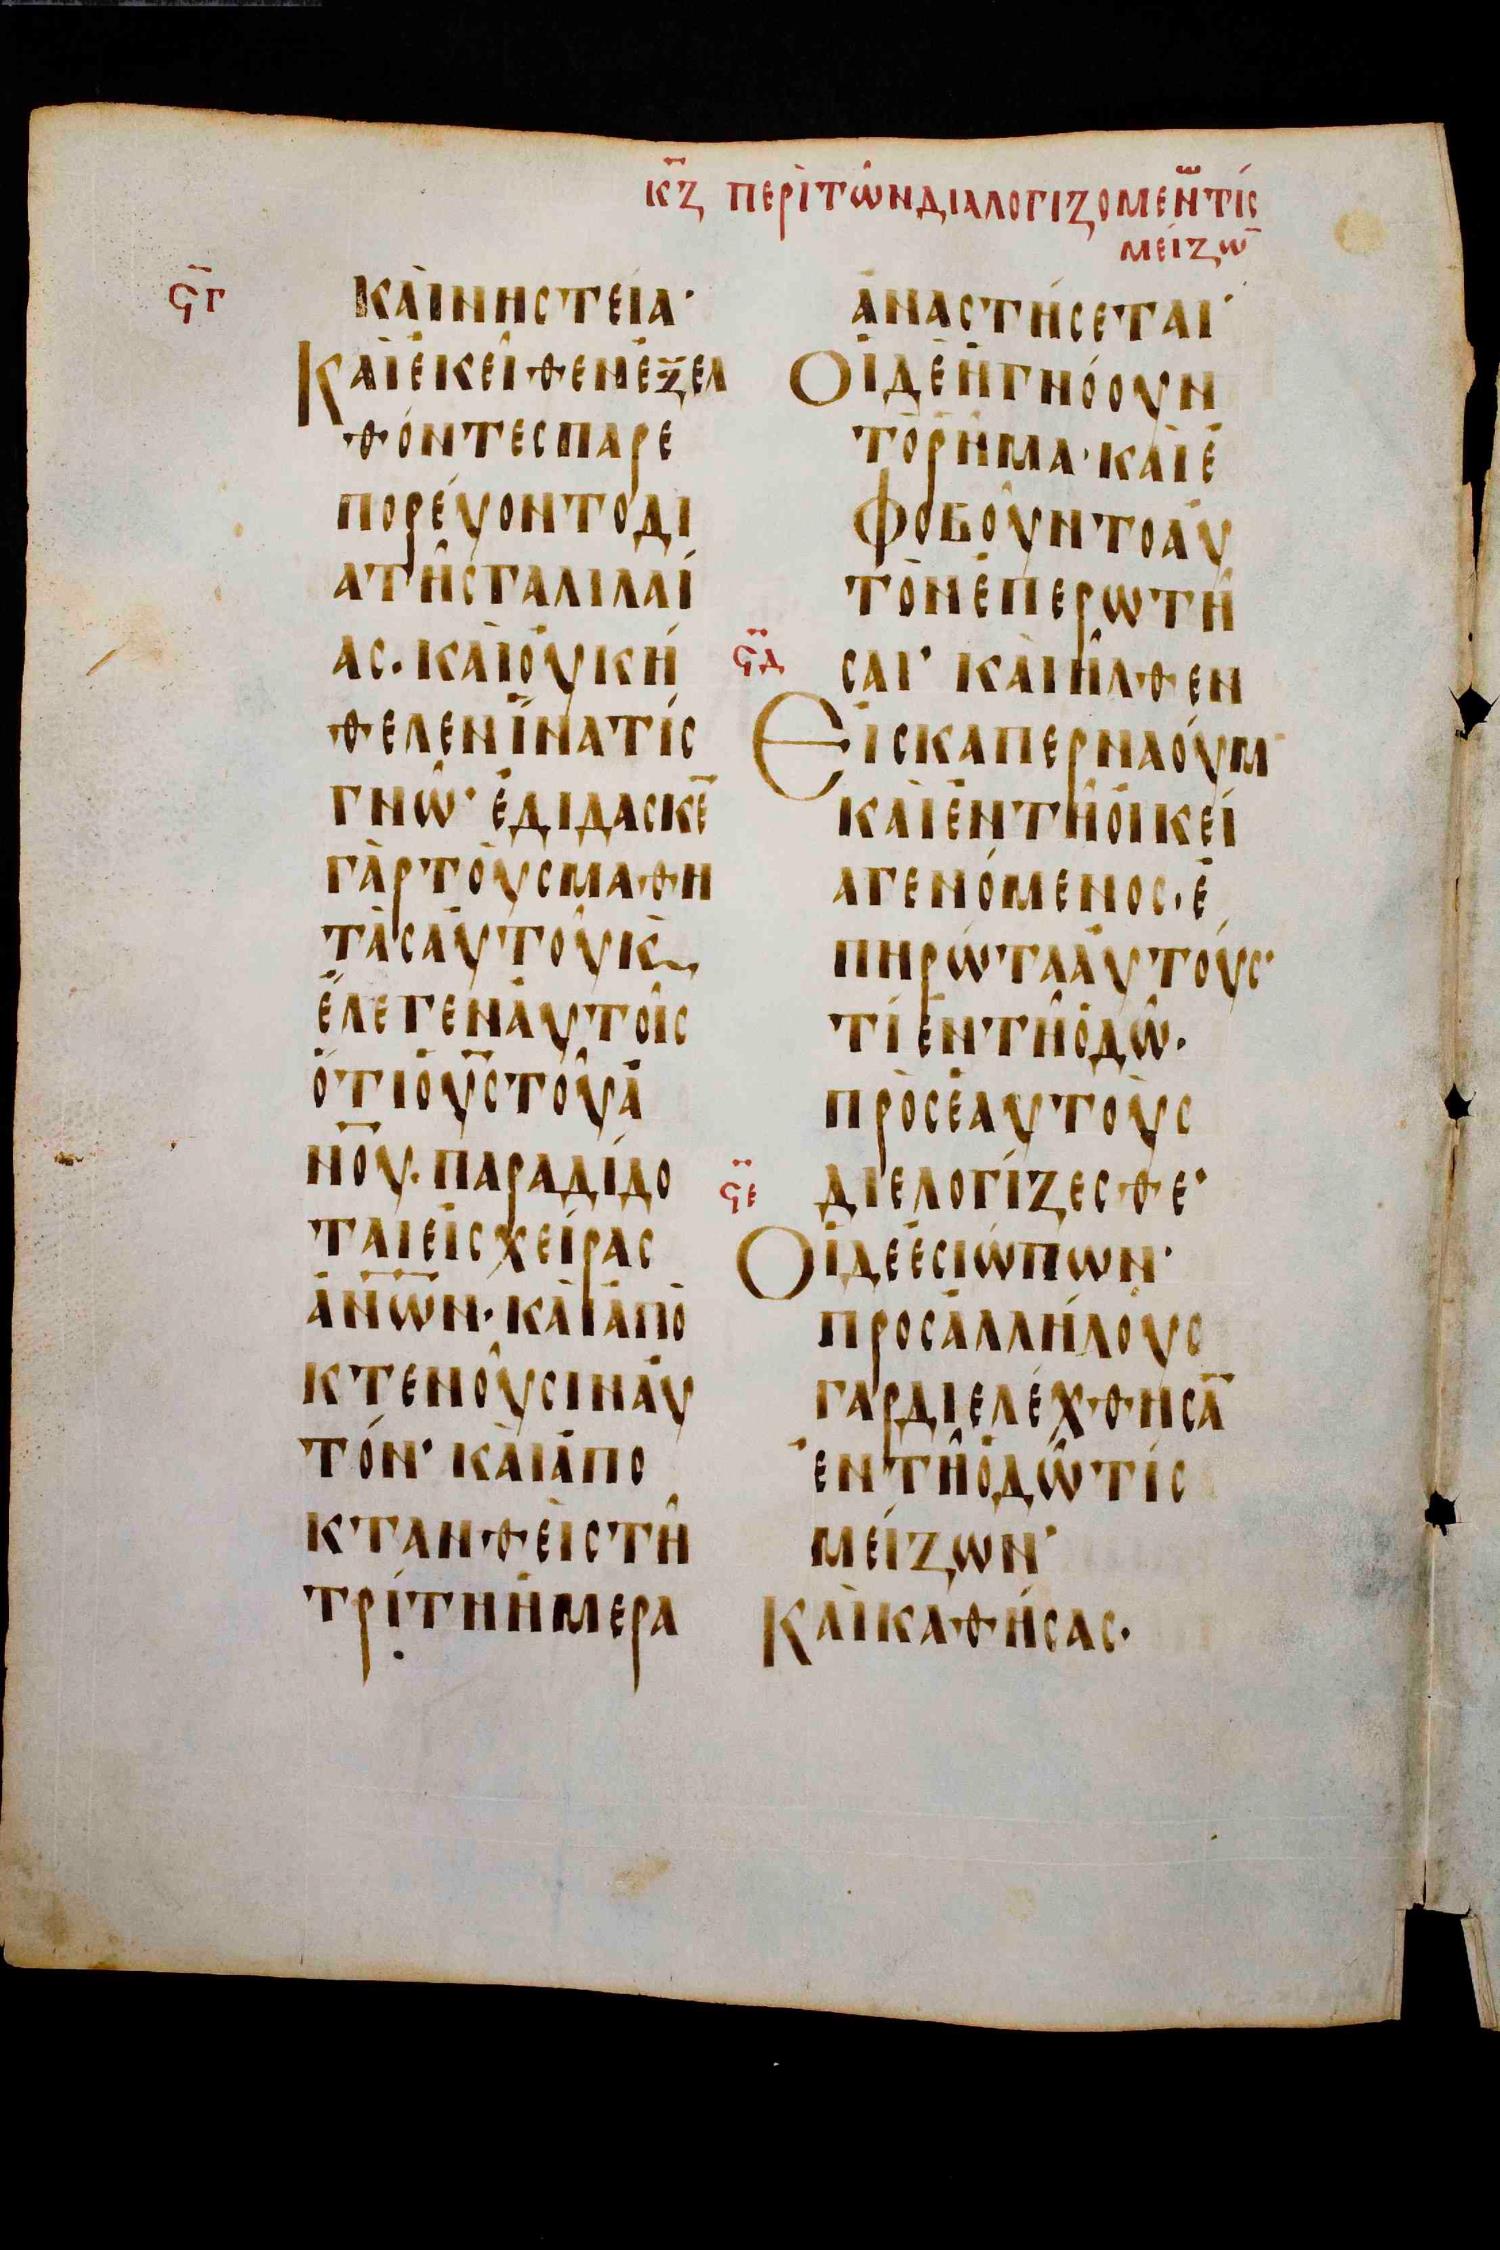 κ̅ζ ΠΕΡῚΤῶΝΔΙΑΛΟΓΙΖΟΜΕΝ̅ΤΊΣ
ΜΕΊΖΩ̅
Ϛ̅Γ
ΚΑῚΝΗΣΤΕΊΑ·
ΚΑῚἘΚΕῖΘΕΝἘΞΕΛ
ΘΌΝΤΕΣΠΑΡΕ
ΠΟΡΕΎΟΝΤΟΔΙ
ΑΤῆΣΓΑΛΙΛΑΊ
ΑΣ. ΚΑῚΟὐΚΉ
ΘΕΛΕΝἽΝΑΤΊΣ
ΓΝῶ· ἘΔΊΔΑΣΚΕ̅
ΓᾺΡΤΟῪΣΜΑΘΗ
ΤᾺΣΑὐΤΟῦΚ̀
ἜΛΕΓΕΝΑὐΤΟῖΣ
ὍΤΙΟΥ̅ΣΤΟῦΑ̅
Ν̅ΟΥ. ΠΑΡΑΔΊΔΟ
ΤΑΙΕἸΣΧΕῖΡΑΣ
ἈΝ̅ΩΝ· ΚΑῚἈΠΟ
ΚΤΕΝΟῦΣΙΝΑὐ
ΤΌΝ· ΚΑῚἈΠΟ
ΚΤΑΝΘΕῚΣΤῆ
ΤΡΊΤΗἩΜΕΡΑ
ἈΝΑΣΤΉΣΕΤΑΙ·
ΟἹΔῈἨΓΝΌΟΥΝ
ΤῸΡῆΜΑ· ΚΑῚἘ
ΦΟΒΟῦΝΤΟΑὐ
ΤῸΝἘΠΕΡΩΤῆ
Ϛ̅Δ
ΣΑΙ· ΚΑῚἦΛΘΕΝ
ΕἸΣΚΑΠΕΡΝΑΟΎΜ
ΚΑῚἘΝΤῆΟἸΚΕΊ
ΑΓΕΝΌΜΕΝΟΣ. Ἐ
ΠΗΡΏΤΑΑὐΤΟΎΣ·
ΤΊἘΝΤῆὉΔῶ.
ΠΡῸΣἙΑΥΤΟῪΣ
Ϛ̅Ε
ΔΙΕΛΟΓΊΖΕΣΘΕ·
ΟἹΔΕἘΣΙΏΠΩΝ·
ΠΡΟΣἈΛΛΉΛΟΥΣ
ΓΑΡΔΙΕΛΈΧΘΗΣΑ̅
ἘΝΤῆὉΔῶΤΊΣ
ΜΕΊΖΩΝ·
ΚΑῚΚΑΘΉΣΑΣ.